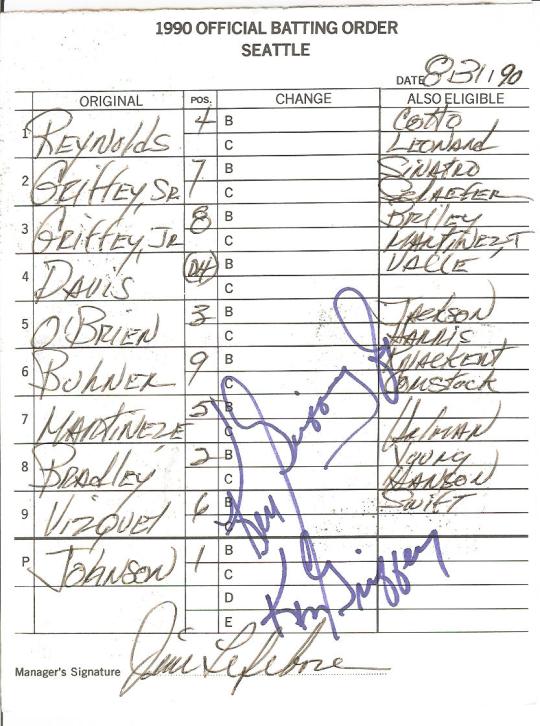 1990 OFFICIAL BATTING ORDER
SEATTLE
DATE 8-31-90
ORIGINAL POS. CHANGE ALSO ELIGIBLE
1 REYNOLDS 4 B COTTO
C LEONARD
2 GRIFFEY, SR 7 B SINATRO
C SCHAEFER
3 GRIFFEY, JR 8 B BRILEY
C MARTINEZ, T
4 DAVIS DH B VALLE
C
5 O'BRIEN 3 B JACKSON
C HARRIS
6 BUHNER 9 B KNACKERT
C COMSTOCK
7 MARTINEZ E 5 B
C HOLMAN
8 BRADLEY 2 B YOUNG
C HANSON
9 VIZQUEL 6 B SWIFT
C
P JOHNSON 1 B
C
D
E
Ken Griffey Jr
Ken Griffey
Manager's Signature Jim Lefebvre